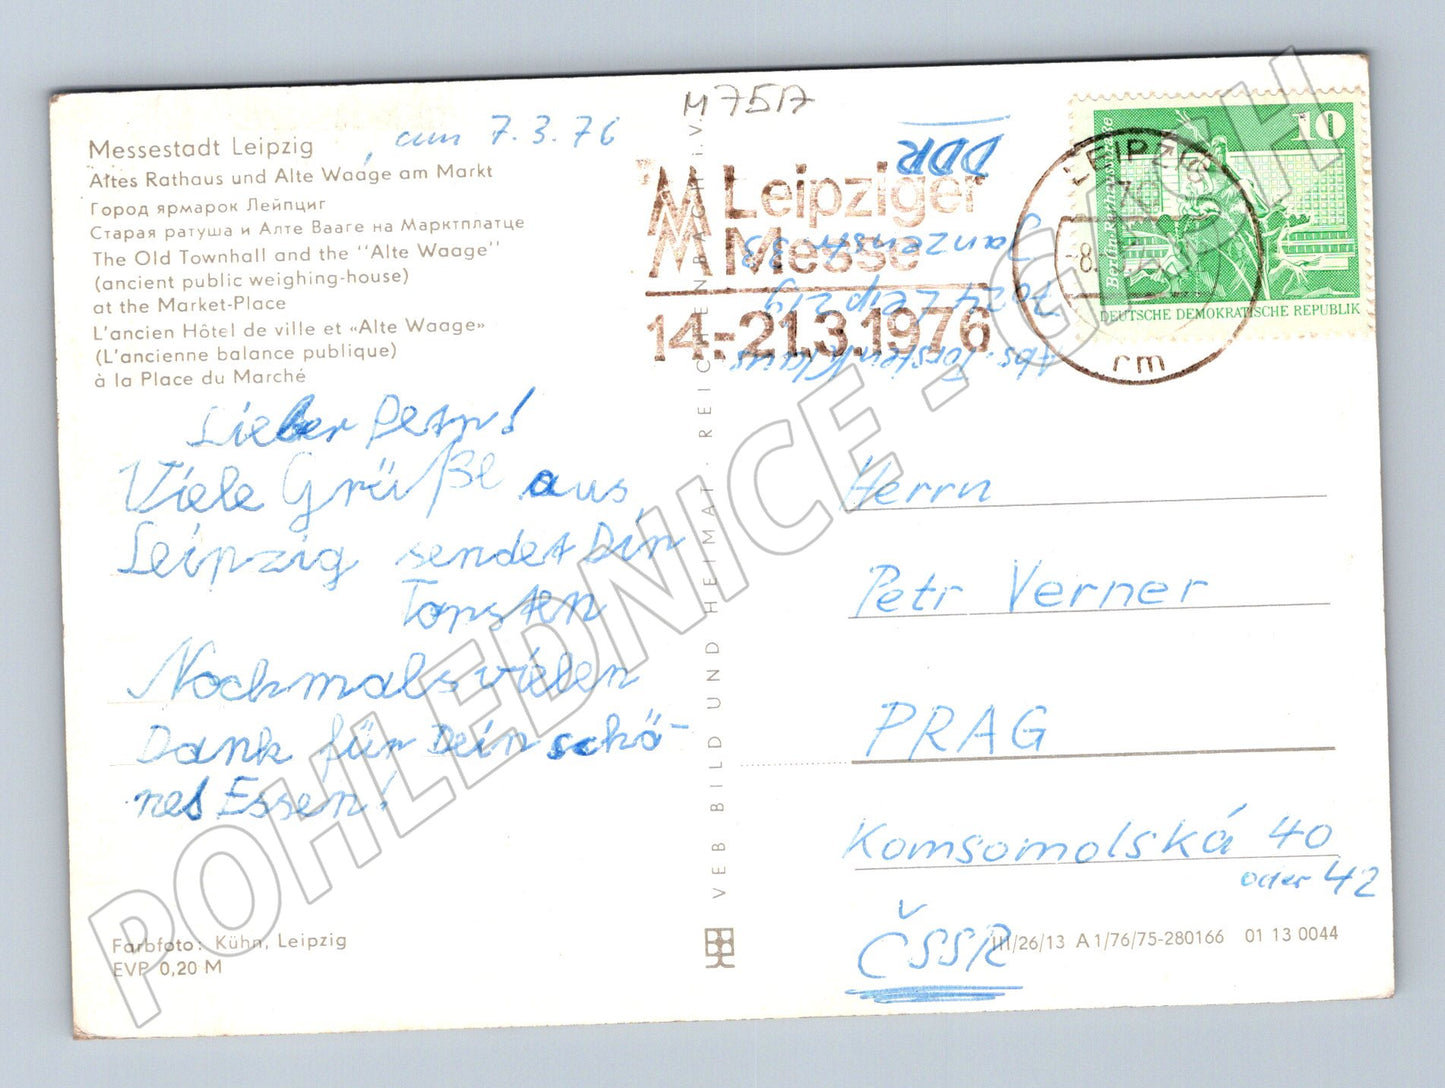 M 7517
Messestadt Leipzig, am 7.3.76
Altes Rathaus und Alte Waage am Markt
Город ярмарок Лейпциг
Старая ратуша и Алте Вааге на Марктплатце
The Old Townhall and the "Alte Waage"
(ancient public weighing-house)
at the Market-Place
L'ancien Hôtel de ville et «Alte Waage»
(L'ancienne balance publique)
à la Place du Marché
Lieber Petr!
Viele Grüße aus
Leipzig sendet Dir
Torsten
Nochmals vielen
Dank für Dein schö-
nes Essen!
Farbfoto: Kühn, Leipzig
EVP 0,20 M
VEB BILD UND HEIMAT REICHENBACH i.V.
MM Leipziger
Messe
14.-21.3.1976
LEIPZIG
-8.
rm
10
Berlin Rathausstraße
DEUTSCHE DEMOKRATISCHE REPUBLIK
Abs.: Torsten Klaus
7024 Leipzig
33
DDR
Herrn
Petr Verner
PRAG
Komsomolská 40
oder 42
ČSSR
III/26/13 A 1/76/75-280166 01 13 0044
POHLEDNICE - GASH